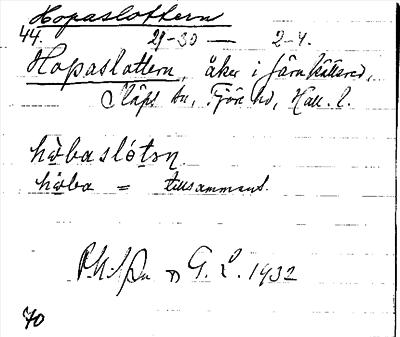 Hopaslottern
44. 29-30 — 2-4.
Hopaslottern, åker i Särn hållsred,
Släps sn, Fjäre hd, Hall. l.
hòbaslótən.
hòba = tillsammans.
G. L. 1932
70